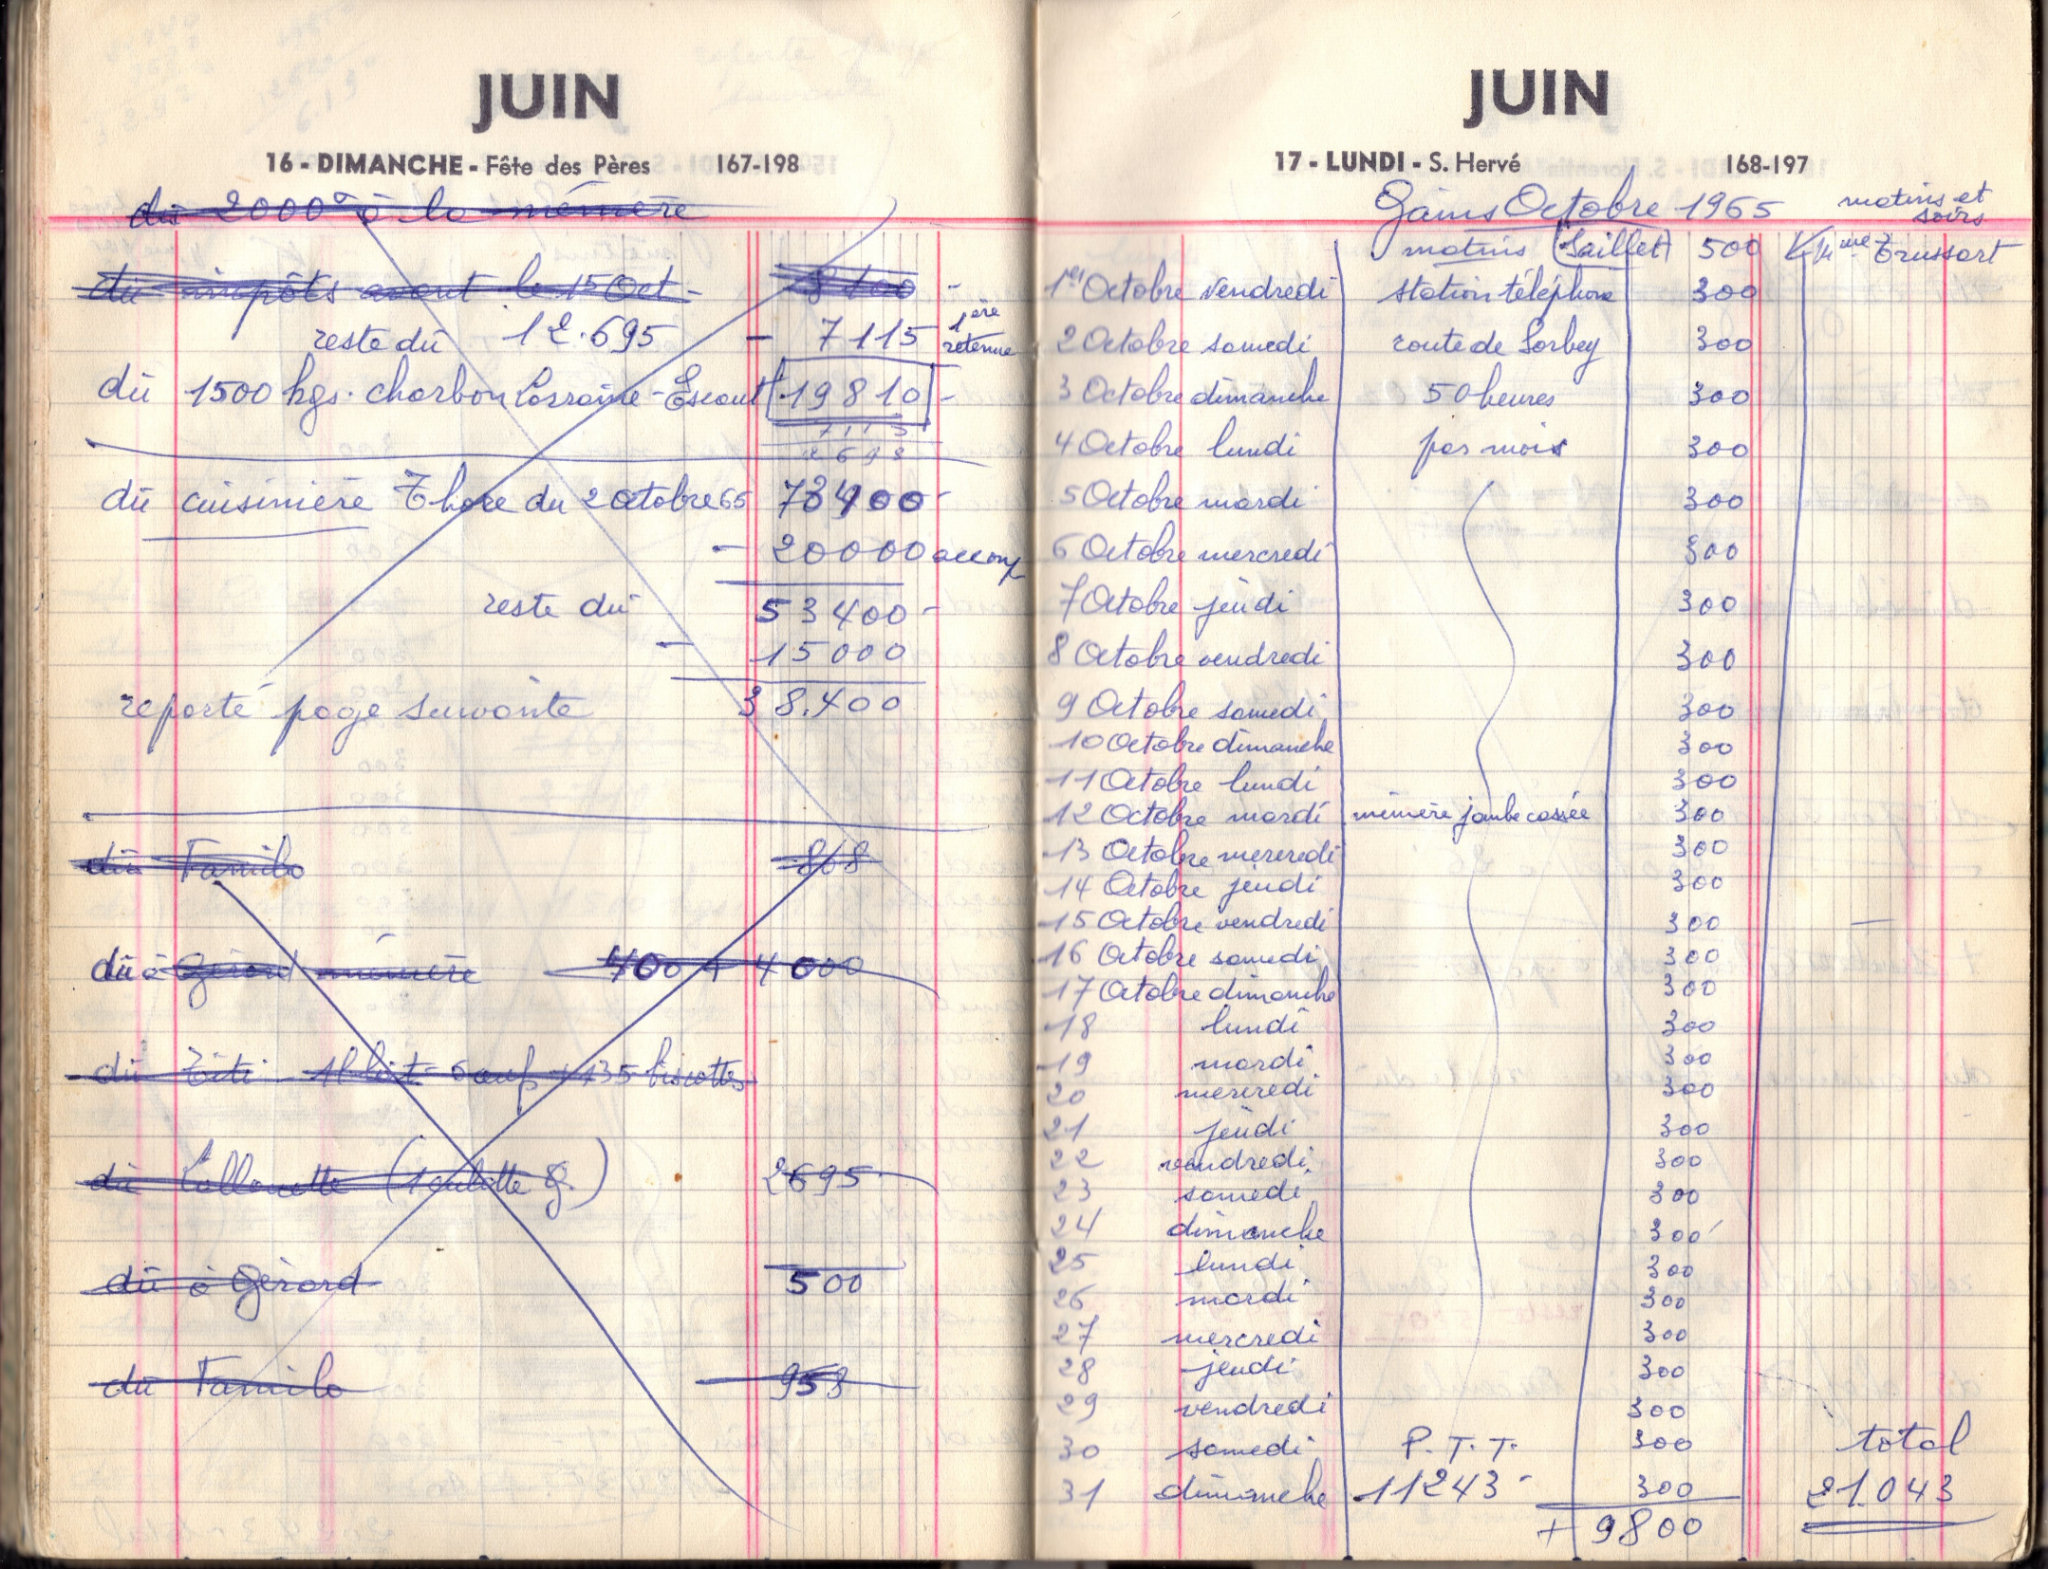 JUIN
16 - DIMANCHE - Fête des Pères 167-198
dû 2000 à la mémère
dû impôts avant le 15 Oct - 8100 -
reste dû 12.695 - 7115 1ère retenue
dû 1500 kgs. charbon Lorraine-Escaut 19810 -
7115
dû cuisinière Thore du 2 octobre 65 73400 -
- 20000 acomp
reste dû 53400 -
- 15000
reporté page suivante 38.400
dû Familo 868
dû à Gérard mémère 400 + 4000
dû Titi 1l lait 6 oeuf + 135 biscottes
dû Collouette (1 culotte G.) 2695
dû à Gérard 500
dû Familo 958
JUIN
17 - LUNDI - S. Hervé 168-197
Gains Octobre 1965 matins et soirs
matins (Saillet) 500 Mme Trussart
1er Octobre vendredi station téléphone 300
2 Octobre samedi route de Sorbey 300
3 Octobre dimanche 50 heures 300
4 Octobre lundi par mois 300
5 Octobre mardi 300
6 Octobre mercredi 300
7 Octobre jeudi 300
8 Octobre vendredi 300
9 Octobre samedi 300
10 Octobre dimanche 300
11 Octobre lundi 300
12 Octobre mardi mémère jambe cassée 300
13 Octobre mercredi 300
14 Octobre jeudi 300
15 Octobre vendredi 300 —
16 Octobre samedi 300
17 Octobre dimanche 300
18 lundi 300
19 mardi 300
20 mercredi 300
21 jeudi 300
22 vendredi 300
23 samedi 300
24 dimanche 300
25 lundi 300
26 mardi 300
27 mercredi 300
28 jeudi 300
29 vendredi 300
30 samedi P.T.T. 300 total
31 dimanche 11243 - 300 21.043
+ 9800